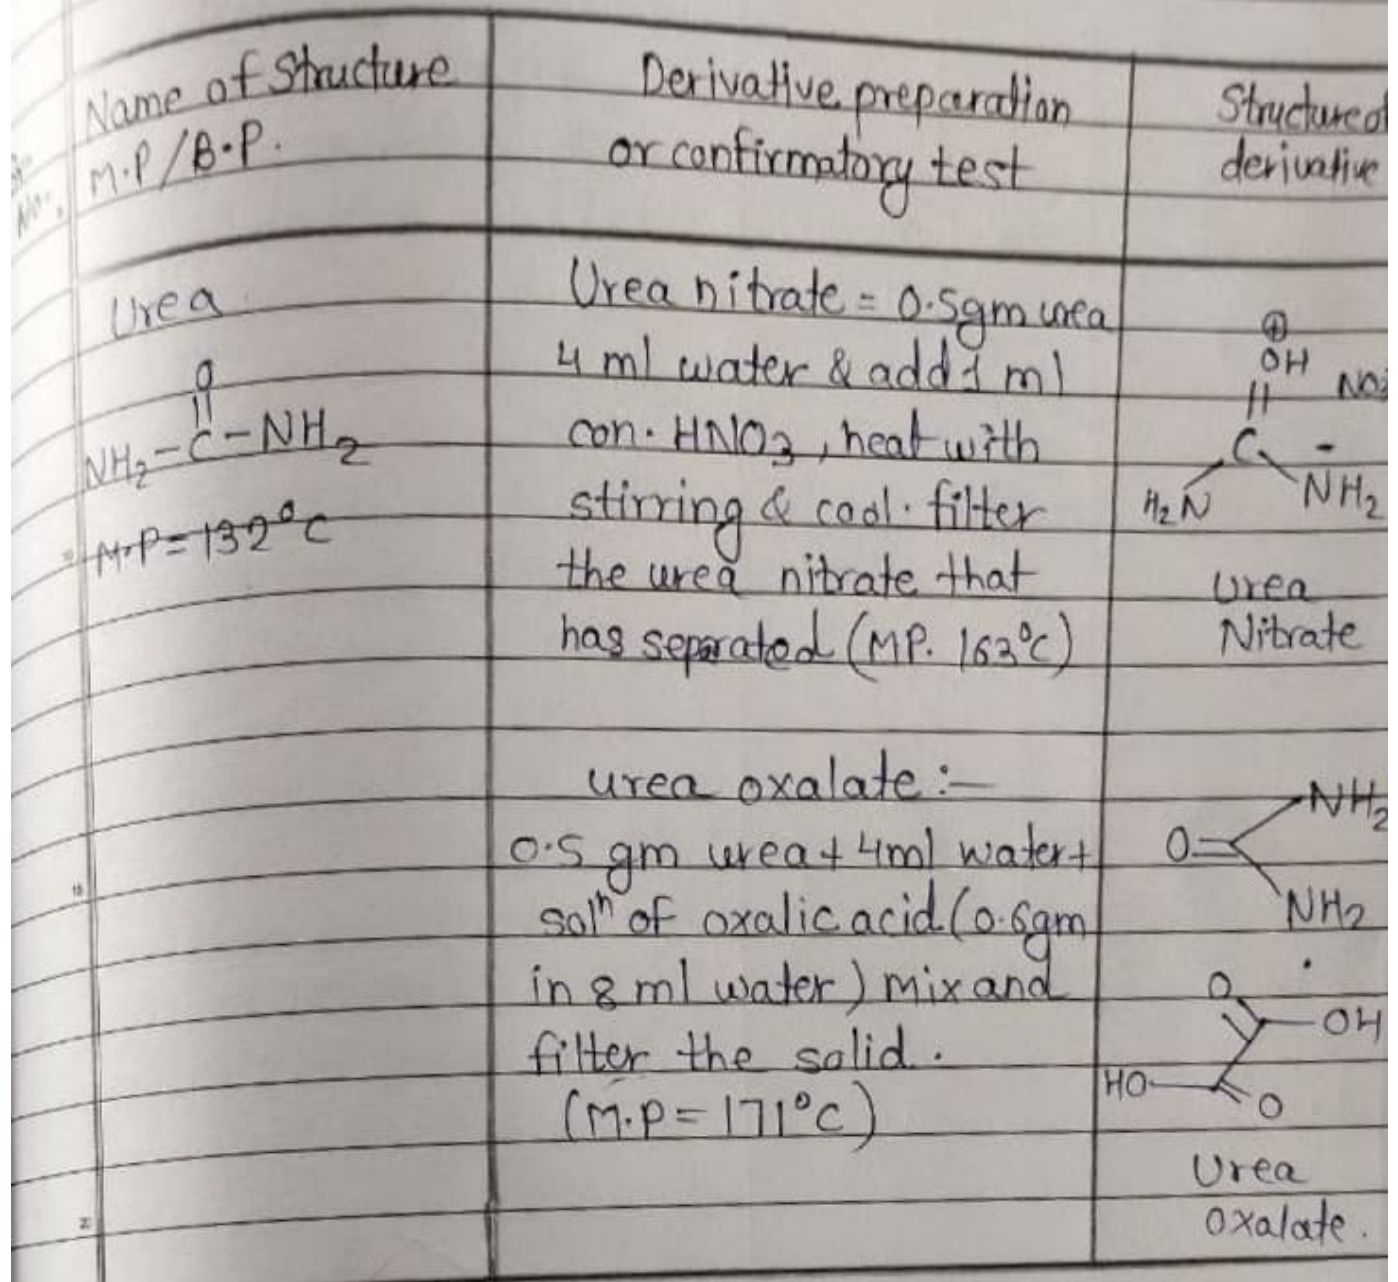 Name of Structure
M.P/B.P.
Derivative preparation
or confirmatory test
Structure of
derivative
No.
Urea
O
NH2-C-NH2
M.P=132°C
Urea nitrate = 0.5gm urea
4 ml water & add 1 ml
con. HNO3, heat with
stirring & cool. filter
the urea nitrate that
has separated (MP. 163°C)
⊕
OH
NO3
C -
H2N NH2
Urea
Nitrate
urea oxalate :-
0.5 gm urea + 4ml water +
solⁿ of oxalic acid (0.6gm
in 8 ml water) mix and
filter the solid.
(M.P = 171°C)
NH2
O
NH2
.
O
OH
HO
O
Urea
oxalate.